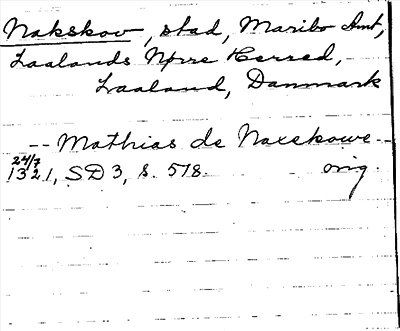 Nakskov, stad, Maribo Amt,
Laalands Nørre Herred,
Laaland, Danmark
-- Mathias de Naxskowe --
24/7
1321, SD 3, s. 578. orig.